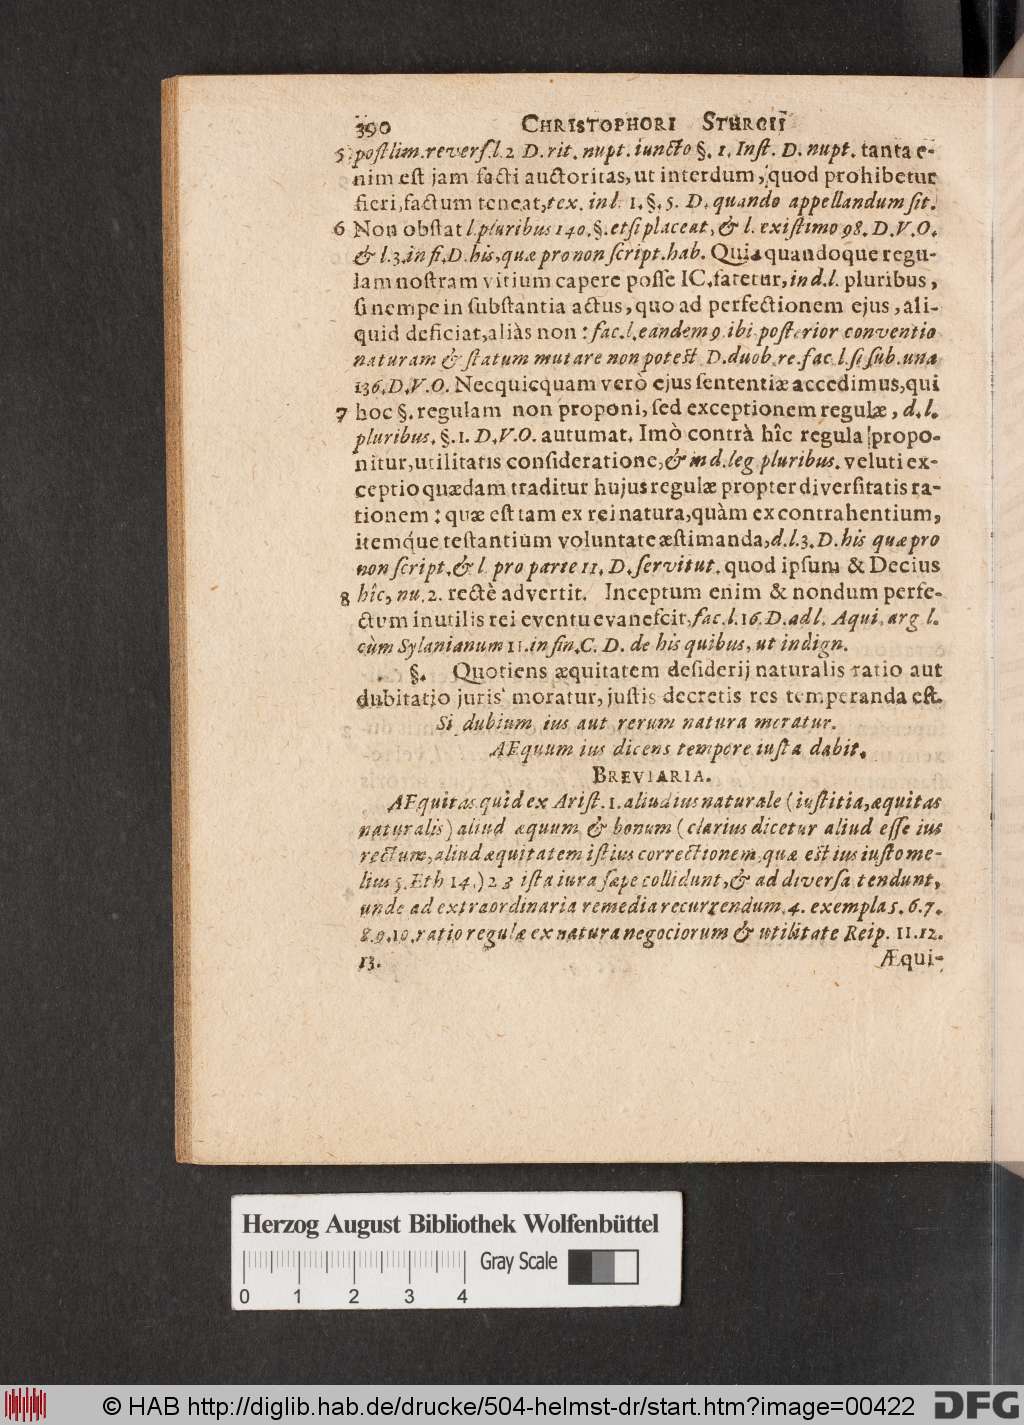 390 CHRISTOPHORI STURCII
5 postlim.revers.l.2 D.rit. nupt. iuncto §. 1. Inst. D. nupt. tanta e-
nim est jam facti auctoritas, ut interdum, quod prohibetur
fieri, factum teneat, tex. in l. 1. §. 5. D. quando appellandum sit.
6 Non obstat l. pluribus 140. §. etsi placeat, & l. existimo 98. D.V.O.
& l.3. in fi. D. his, quæ pro non script. hab. Quia quandoque regu-
lam nostram vitium capere posse IC. fatetur, in d.l. pluribus,
si nempe in substantia actus, quo ad perfectionem ejus, ali-
quid deficiat, aliàs non: fac. l. eandem 9. ibi posterior conventio
naturam & statum mutare non potest D. duob. re. fac. l. si sub. una
136. D.V.O. Necquicquam verò ejus sententiæ accedimus, qui
7 hoc §. regulam non proponi, sed exceptionem regulæ, d. l.
pluribus. §. 1. D.V.O. autumat. Imò contrà hîc regula propo-
nitur, utilitatis consideratione, & in d. leg pluribus. veluti ex-
ceptio quædam traditur hujus regulæ propter diversitatis ra-
tionem: quæ est tam ex rei natura, quàm ex contrahentium,
itemque testantium voluntate æstimanda, d.l.3. D. his quæ pro
non script. & l. pro parte 11. D. servitut. quod ipsum & Decius
8 hîc, nu. 2. rectè advertit. Inceptum enim & nondum perfe-
ctum inutilis rei eventu evanescit, fac. l. 16. D. ad l. Aqui. arg l.
cùm Sylanianum 11. in fin. C. D. de his quibus, ut indign.
§. Quotiens æquitatem desiderij naturalis ratio aut
dubitatio juris moratur, justis decretis res temperanda est.
Si dubium ius aut rerum natura moratur.
AEquum ius dicens tempore iusta dabit.
BREVIARIA.
AEquitas quid ex Arist. 1. aliud ius naturale (iustitia, æquitas
naturalis) aliud æquum & bonum (clarius dicetur aliud esse ius
rectum, aliud æquitatem istius correctionem quæ est ius iusto me-
lius 5. Eth 14.) 2 3 ista iura sæpe collidunt, & ad diversa tendunt,
unde ad extraordinaria remedia recurrendum. 4. exempla 5. 6. 7.
8. 9. 10. ratio regulæ ex natura negociorum & utilitate Reip. 11. 12.
13. Æqui-
Herzog August Bibliothek Wolfenbüttel
Gray Scale
0 1 2 3 4
© HAB http://diglib.hab.de/drucke/504-helmst-dr/start.htm?image=00422 DFG